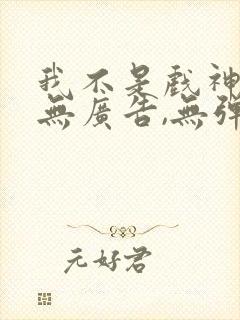 我不是戲神
無廣告,無彈
元好君